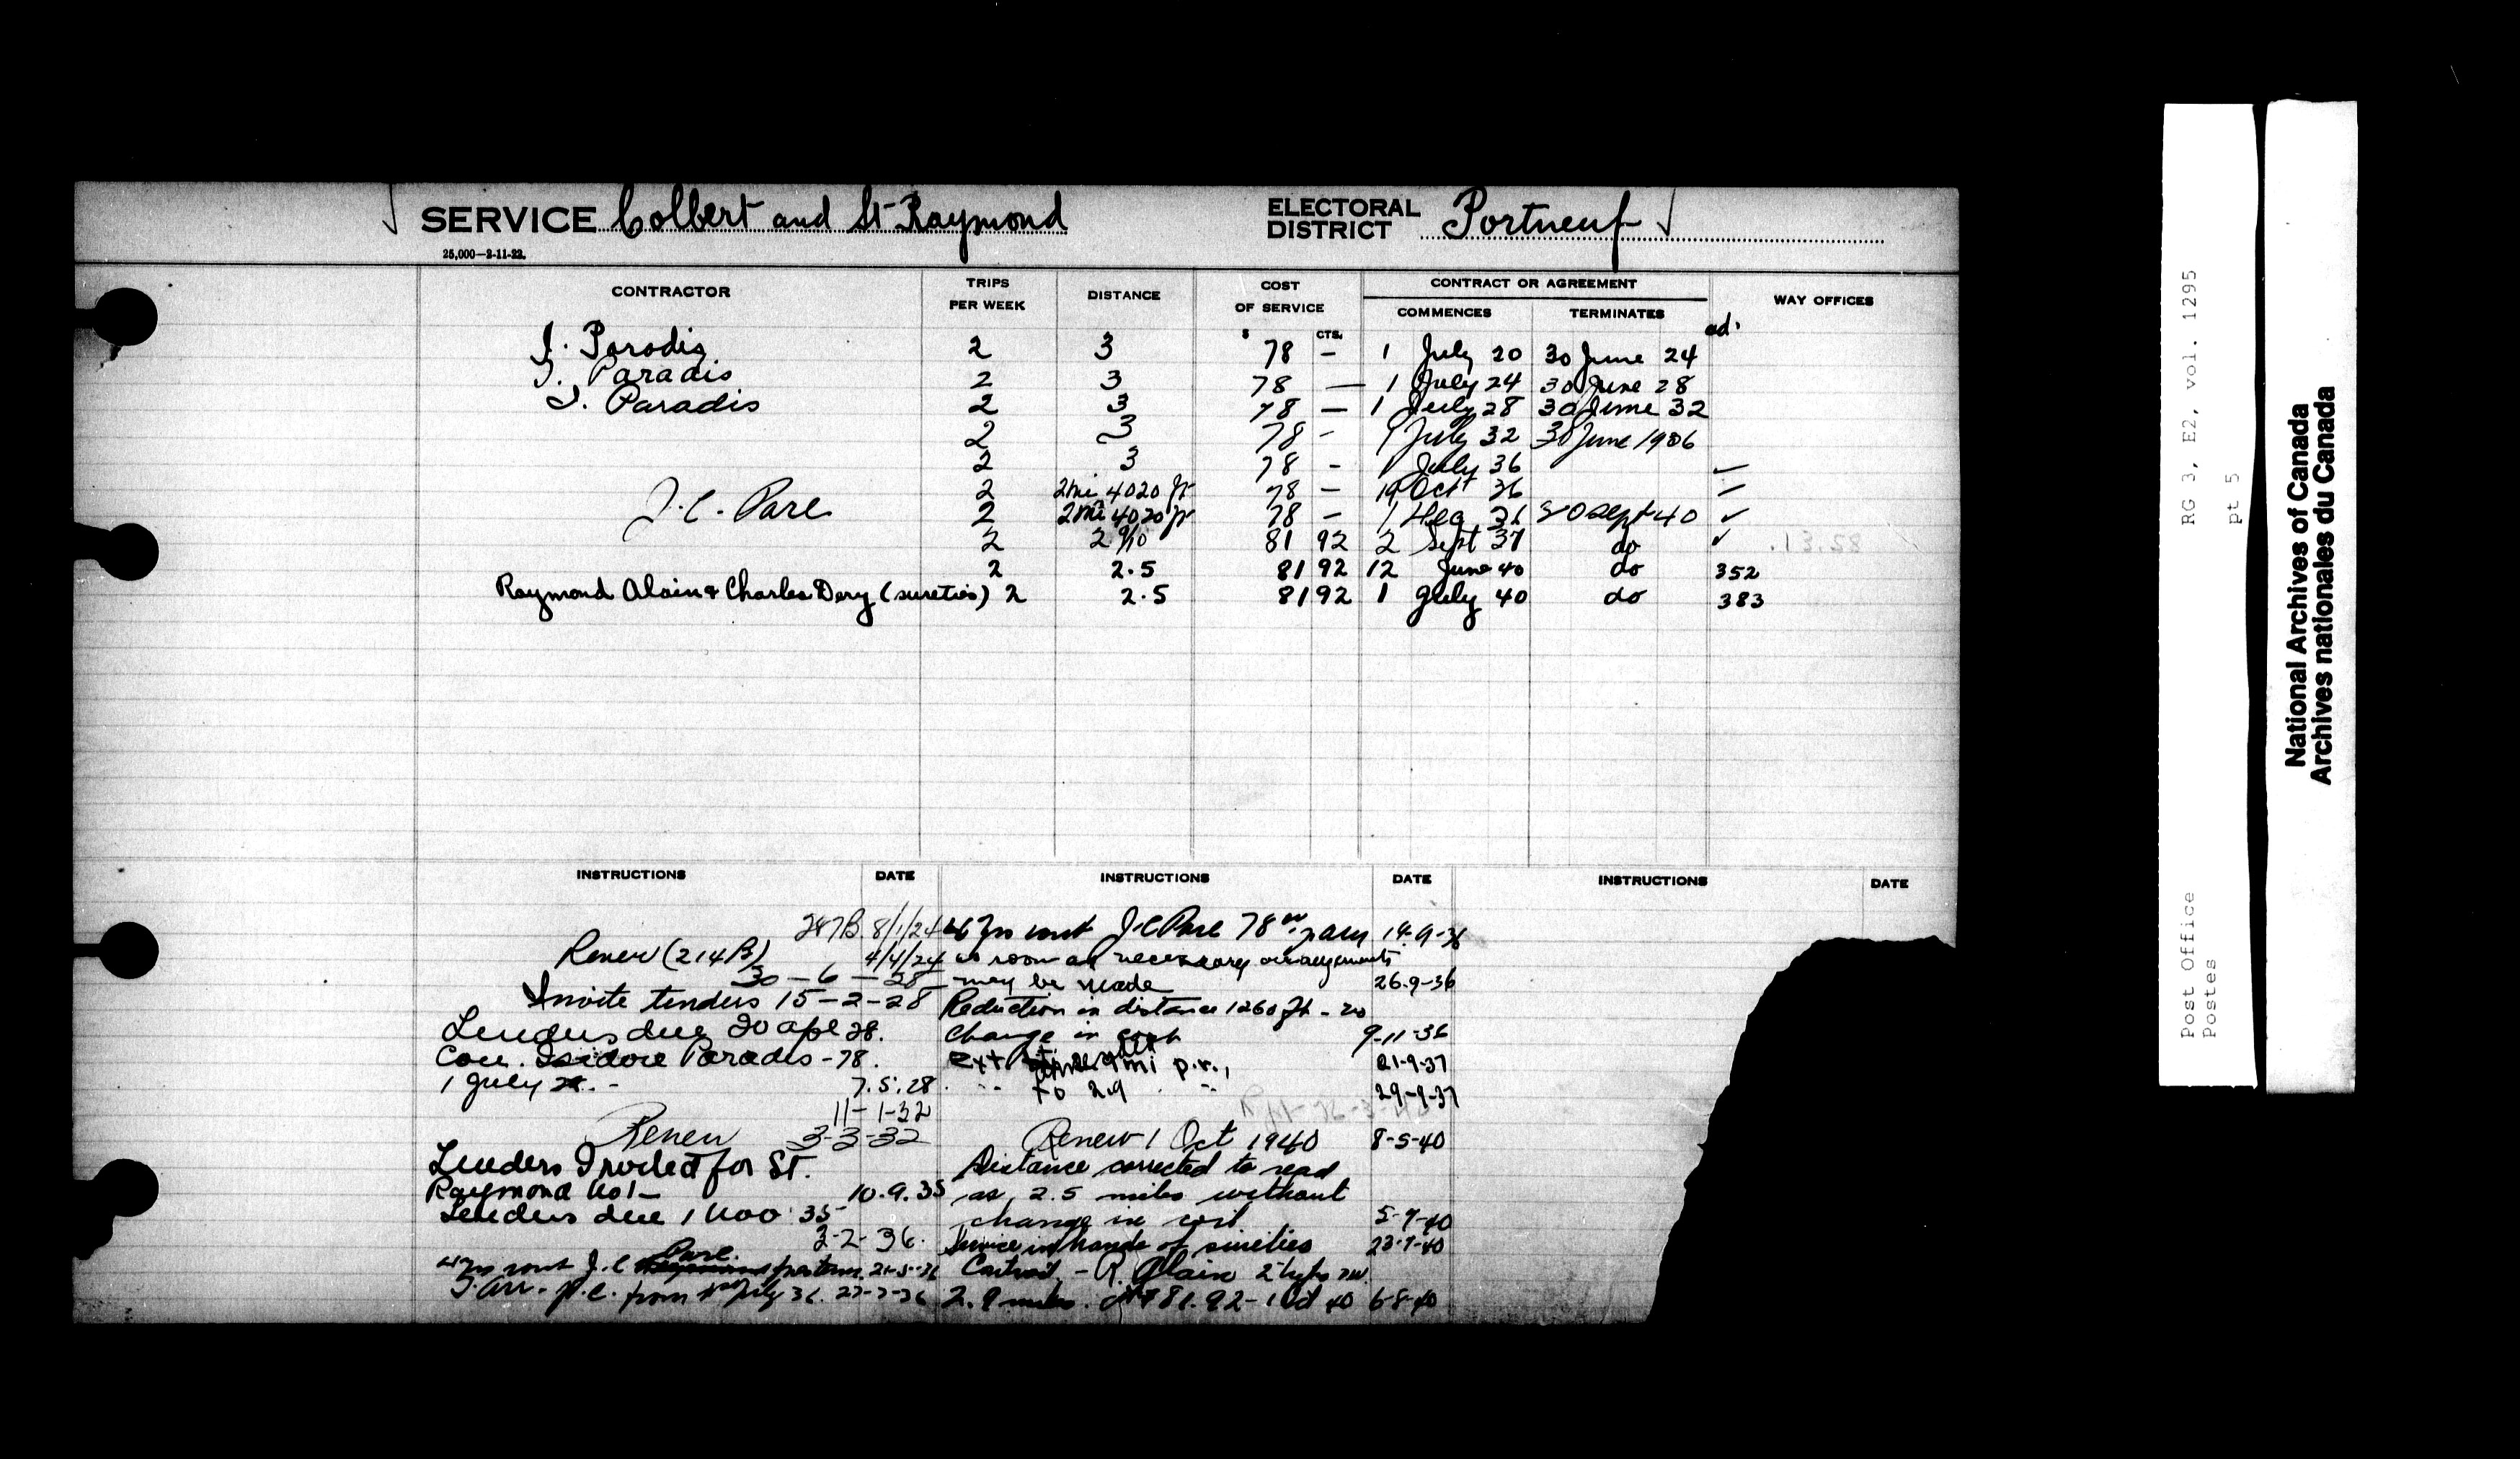 SERVICE Colbert and St Raymond
ELECTORAL DISTRICT Portneuf
25,000—2-11-22.
CONTRACTOR TRIPS PER WEEK DISTANCE COST OF SERVICE CONTRACT OR AGREEMENT WAY OFFICES
$ CTS. COMMENCES TERMINATES
ad.
I. Paradis 2 3 78 – 1 July 20 30 June 24
I. Paradis 2 3 78 — 1 July 24 30 June 28
I. Paradis 2 3 78 — 1 July 28 30 June 32
2 3 78 – 1 July 32 30 June 1936
2 3 78 – 1 July 36
2 2mi 4020 ft 78 – 19 Oct 36
J. C. Pare 2 2mi 4020 ft 78 – 1 36 30 Sept 40
2 2 9/10 81 92 2 Sept 37 do
2 2.5 81 92 12 June 40 do 352
Raymond Alain & Charles Dery (sureties) 2 2.5 81 92 1 July 40 do 383
INSTRUCTIONS DATE INSTRUCTIONS DATE INSTRUCTIONS DATE
287B. 8/1/24
Renew (214B) 4/4/24
30–6–28
Invite tenders 15–2–28
Tenders due 20 Apl 28.
Con. Isidore Paradis - 78.
1 July 28. - 7.5.28
11-1-32
Renew 3-3-32
Tenders Invited for St.
Raymond No 1 — 10.9.35
Tenders due 1 Nov 35
3-2-36.
J. C Pare 21-5-36
T. Arr. p.c. from 1st July 36.
J. C Pare 78 p.ann 14-9-36
as soon as necessary arrangements
may be made 26.9-36
Reduction in distance 1260 ft - no
change in cost 9-11-36
Ext p.r., 21-9-37
" to 2.9 " 29-9-37
Renew 1 Oct 1940 8-5-40
Distance corrected to read
as 2.5 miles without
change in cost 5-7-40
Service in hands of sureties 23-7-40
Contract, – R. Alain 2 trips
2.9 miles. at $81.92 - 1 Oct 40 6-8-40
RG 3, E2, vol. 1295
pt 5
Post Office
Postes
National Archives of Canada
Archives nationales du Canada